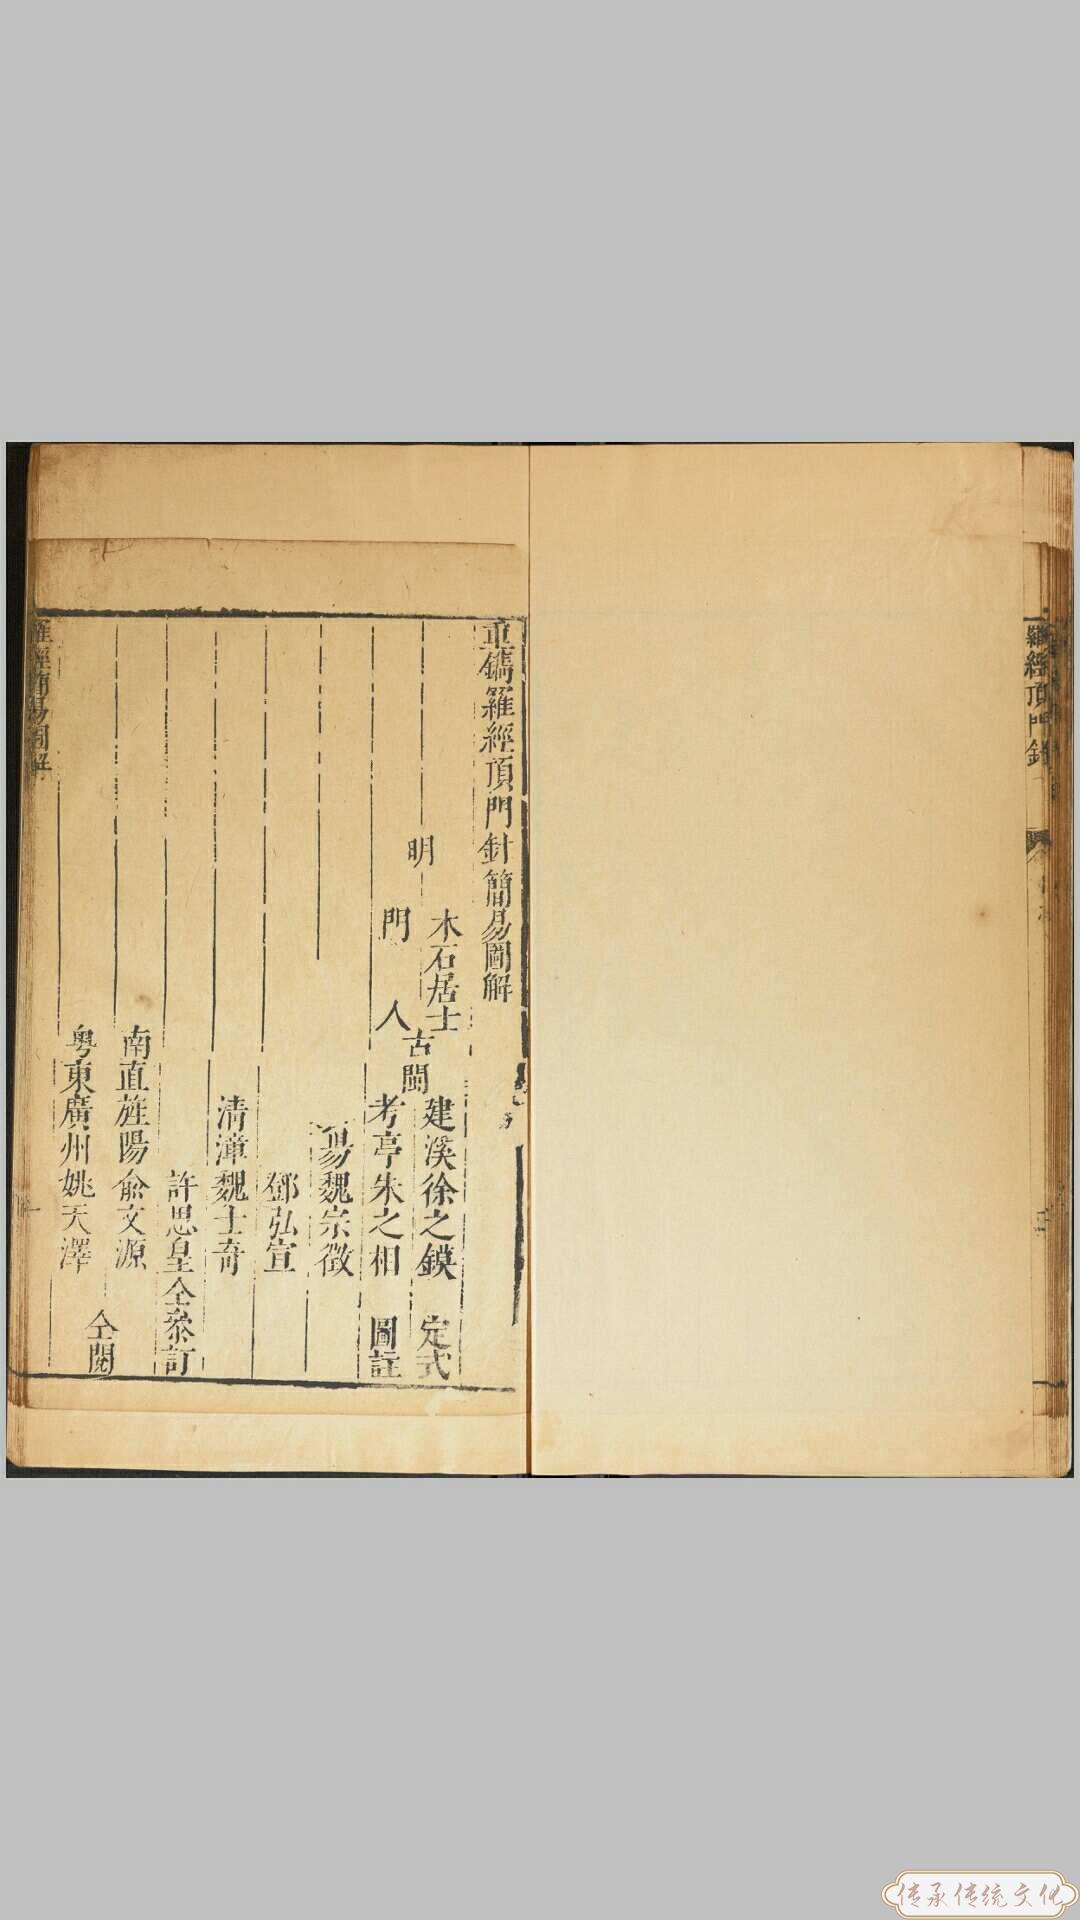 羅經頂門針
重鐫羅經頂門針簡易圖解
明
木石居士
門人
古閩
建溪徐之鏌 定式
考亭朱之相 圖註
魏宗徵
鄧弘宣
清漳魏士奇
許思皇仝叅訂
南直旌陽俞文源
粤東廣州姚天澤
仝閱
羅經簡易圖解
传承传统文化